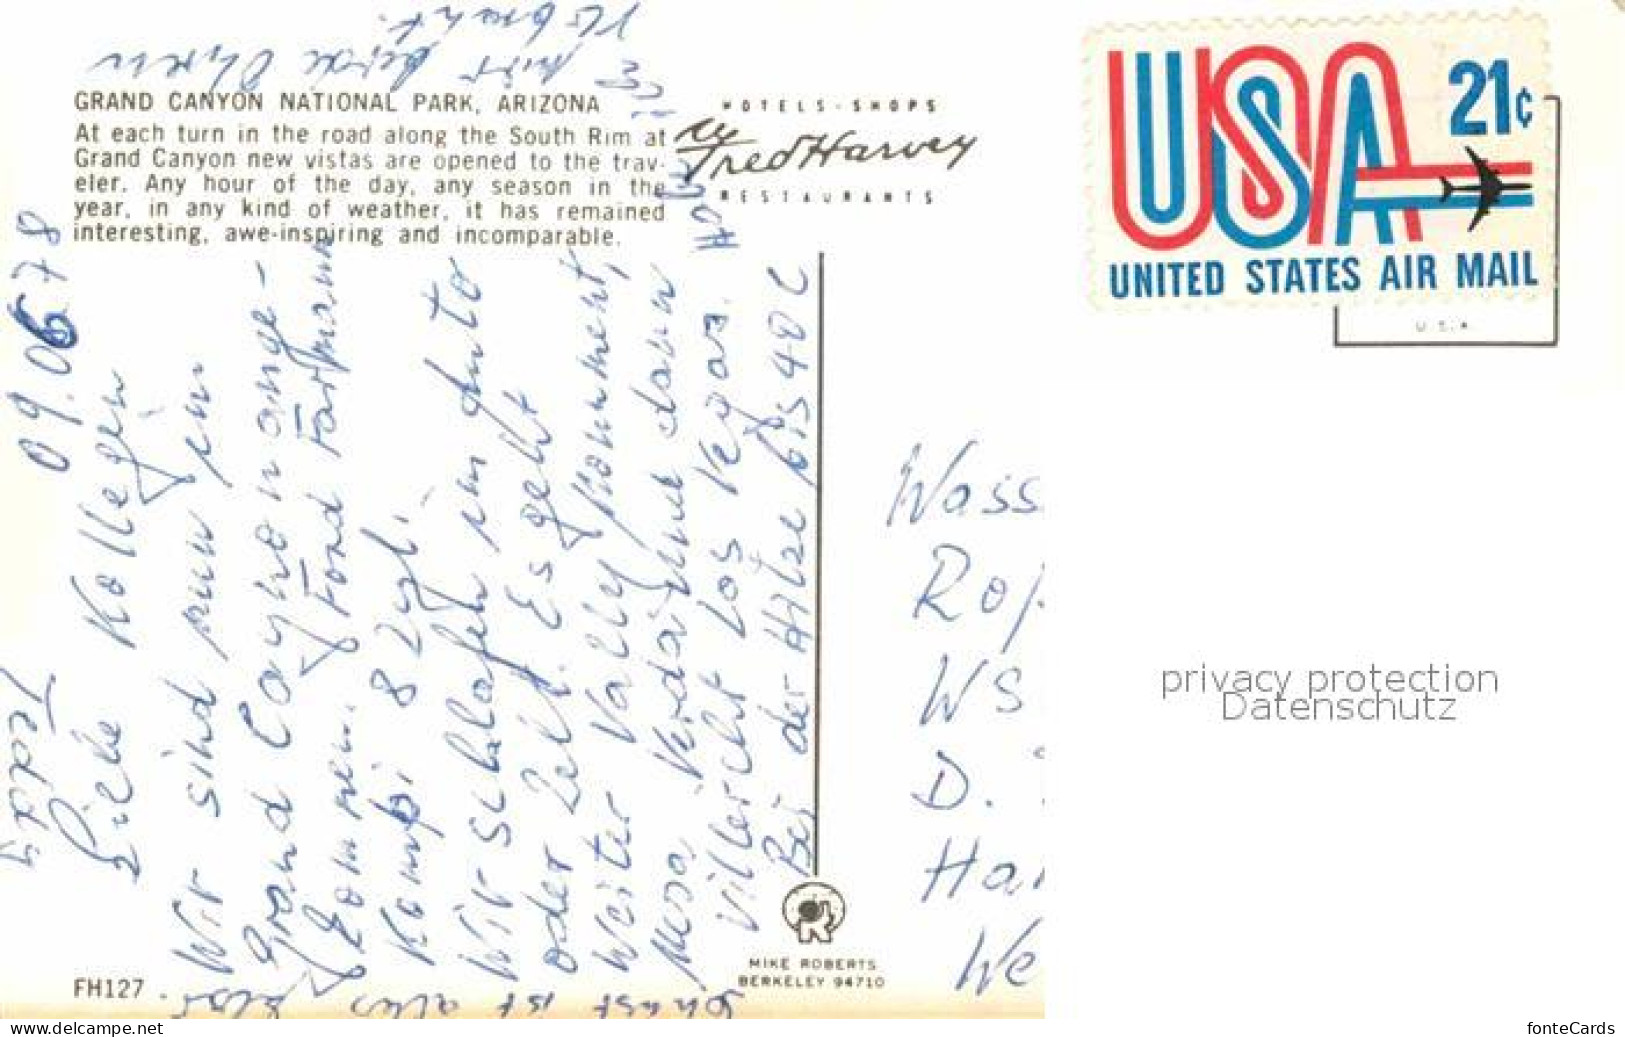 GRAND CANYON NATIONAL PARK, ARIZONA
At each turn in the road along the South Rim at
Grand Canyon new vistas are opened to the trav-
eler. Any hour of the day, any season in the
year, in any kind of weather, it has remained
interesting, awe-inspiring and incomparable.
HOTELS · SHOPS
Fred Harvey
RESTAURANTS
USA 21c
UNITED STATES AIR MAIL
U.S.A.
09.0678
Liebe Kollegen
Wir sind nun im
Grand Cayno n ange-
kommen.
Kombi 8 Zyl.
Wir schlafen im Auto
oder Zelt. Es geht
weiter Vally Monument,
Mesa Verda, und dann
villericht Los Vegas.
Bei der Hitze bis 40 C
sonst ist alles
mir beide Ohren
Teddy
Wass
Rop
WS
D.
Ha
We
FH127
MIKE ROBERTS
BERKELEY 94710
privacy protection
Datenschutz
www.delcampe.net
fonteCards